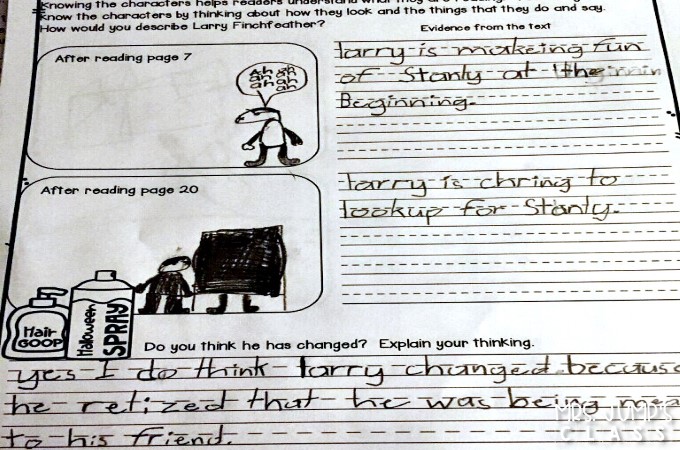 Knowing the characters helps readers understand what they are reading.
Know the characters by thinking about how they look and the things that they do and say.
How would you describe Larry Finchfeather?
Evidence from the text
After reading page 7
Ah ah
ah ah
ah ah
ah
larry is makeing fun
of Stanly at the
Beginning.
After reading page 20
larry is chring to
lookup for Stanly.
Hair
GOOP
Halloween
SPRAY
Do you think he has changed? Explain your thinking.
yes I do think larry changed becaus
he relized that he was being mea
to his friend.
MRS. JUMP'S
CLASS